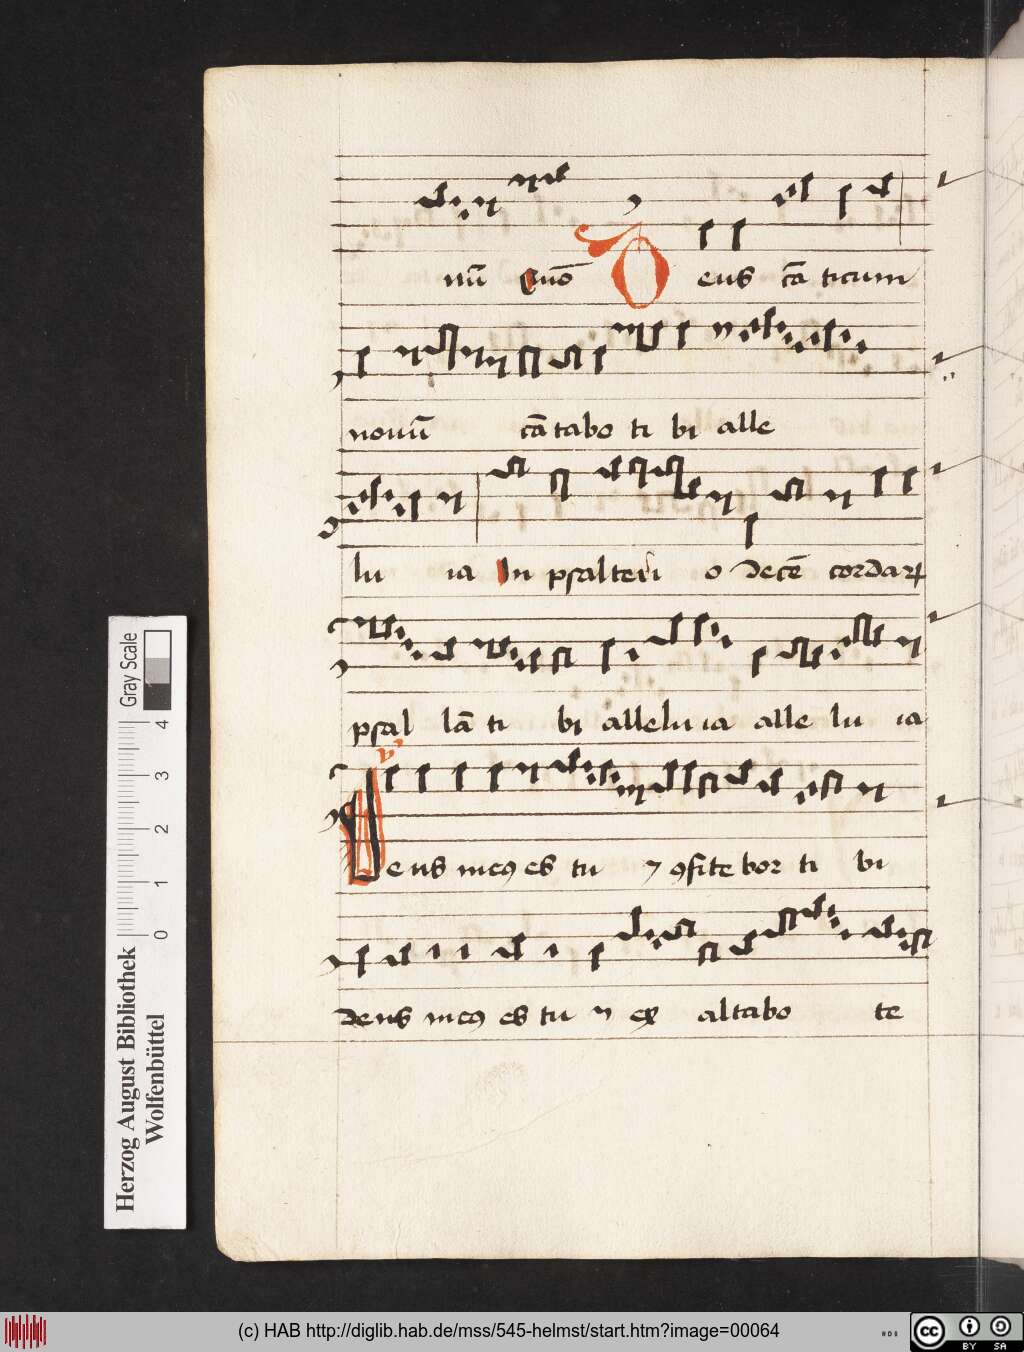 nū Quō Deus cā ticum
nouū cātabo ti bi alle
lu ia In psalteri o decē cordaꝝ
psal lā ti bi alleluia alle lu ia
℣
Deus meꝰ es tu ⁊ ꝯfitebor ti bi
deus meꝰ es tu ⁊ ex altabo te
Herzog August Bibliothek
Wolfenbüttel
0 1 2 3 4
Gray Scale
(c) HAB http://diglib.hab.de/mss/545-helmst/start.htm?image=00064
cc BY SA